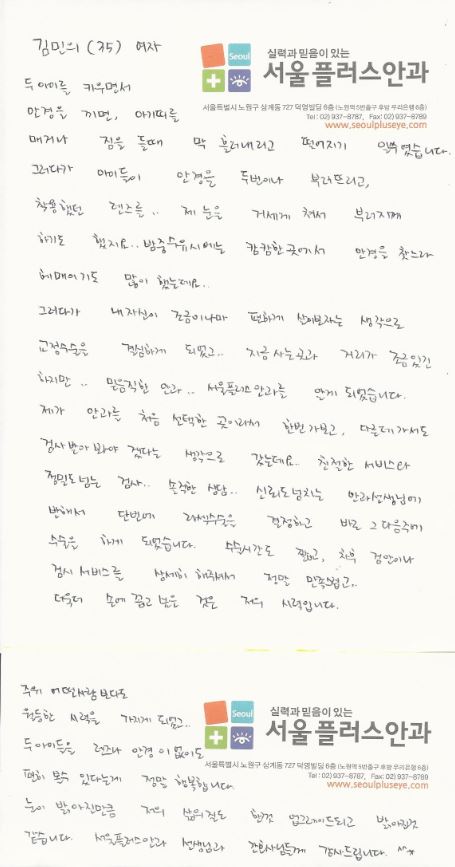 김민의 (35) 여자
Seoul
실력과 믿음이 있는
서울 플러스안과
서울특별시 노원구 상계동 727 덕영빌딩 6층 (노원역 5번출구 후방 우리은행 6층)
Tel : 02) 937-8787, Fax: 02) 937-8789
www.seoulpluseye.com
두 아이를 키우면서
안경을 끼면, 아기띠를
매거나 짐을 들때 막 흘러내리고 떨어지기 일쑤였습니다.
그러다가 아이들이 안경을 두번이나 부러뜨리고,
착용했던 렌즈를.. 제 눈을 거세게 쳐서 부러지게
하기도 했지요.. 밤중수유시에는 캄캄한 곳에서 안경을 찾느라
헤매이기도 많이 했는데요..
그러다가 내 자신이 조금이나마 편하게 살아보자는 생각으로
교정수술을 결심하게 되었고.. 지금 사는곳과 거리가 조금 있긴
하지만.. 믿음직한 안과.. 서울플러스안과를 알게 되었습니다.
제가 안과를 처음 선택한 곳이라서 한번 가보고, 다른데 가서도
검사받아 봐야 겠다는 생각으로 갔는데요.. 친절한 서비스와
정밀도 넘는 검사.. 솔직한 상담.. 신뢰도 넘치는 안과선생님에
반해서 단번에 라섹수술을 결정하고 바로 그 다음주에
수술을 하게 되었습니다. 수술시간도 짧고, 차후 검안이나
검시 서비스를 상세히 해주셔서 정말 만족스럽고..
더욱더 손에 꼽고 싶은 것은 저의 시력입니다.
Seoul
실력과 믿음이 있는
서울 플러스안과
서울특별시 노원구 상계동 727 덕영빌딩 6층 (노원역 5번출구 후방 우리은행 6층)
Tel : 02) 937-8787, Fax: 02) 937-8789
www.seoulpluseye.com
주위 어떤사람 보다도
월등한 시력을 가지게 되었고..
두 아이들을 렌즈나 안경 이 없이도
편히 볼수 있다는게 정말 행복합니다.
눈이 밝아진만큼 저의 삶의질도 한껏 업그레이드되고 밝아진것
같습니다. 서울플러스안과 선생님과 간호사님들께 감사드립니다. ^^